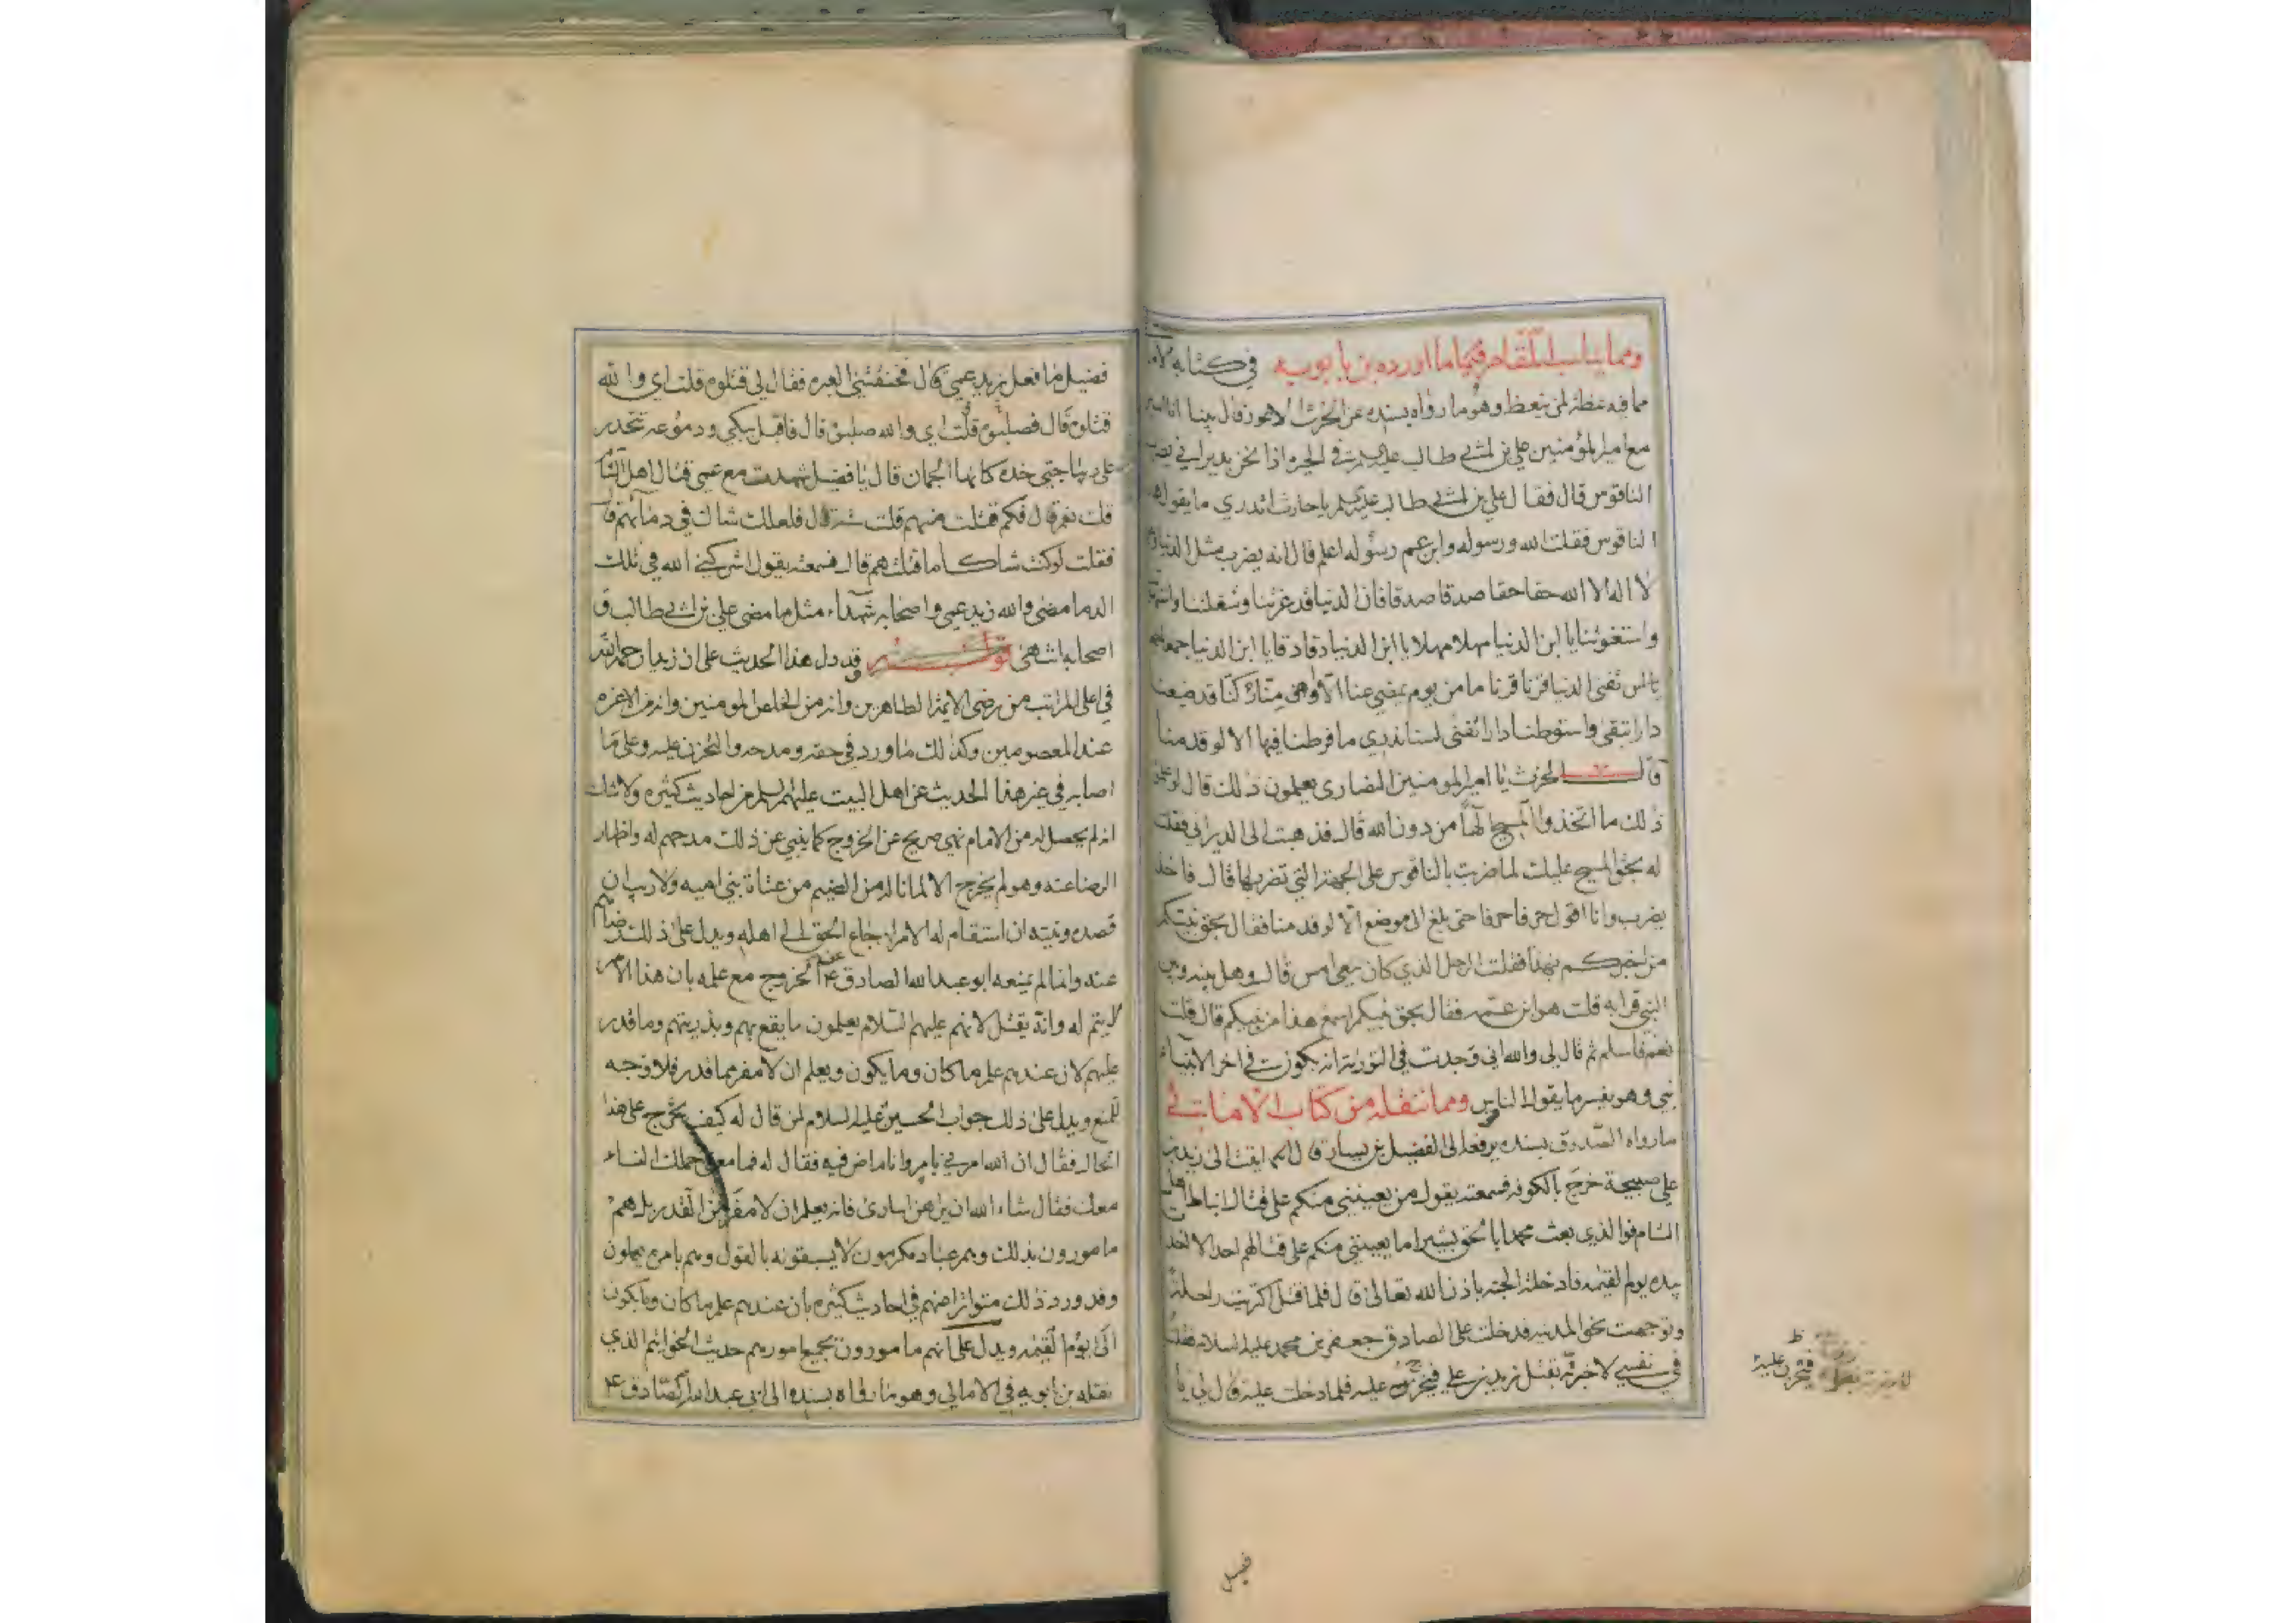 ومما يناسب المقام فيها ما اورده بن بابويه في كتابه
مما فيه عظة لمن يتعظ وهو ما رواه بسنده عن الحرث الاعور قال بينا انا اسير
مع امير المؤمنين علي بن ابي طالب عليه السلم في الحيره اذا نحن بديراني يضرب
الناقوس قال فقال علي بن ابي طالب عليه السلم يا حارث اتدري ما يقول هذا
الناقوس فقلت الله ورسوله وابن عم رسوله اعلم قال انه يضرب مثل الدنيا
لا اله الا الله حقا حقا صدقا صدقا فان الدنيا قد غرتنا وشغلتنا واستهوتنا
واستغوتنا يا ابن الدنيا مهلا مهلا يا ابن الدنيا دقا دقا يا ابن الدنيا جمعا جمعا
تفنى الدنيا قرنا قرنا ما من يوم يمضي عنا الا واوهى منا ركنا قد ضيعنا
دارا تبقى واستوطنا دارا تفنى لسنا ندري ما فرطنا فيها الا لو قدمنا
قال الحرث يا امير المومنين النصارى يعلمون ذلك قال لو علموا
ذلك ما اتخذوا المسيح آلها من دون الله قال فذهبت الى الديراني فقلت
له بحق المسيح عليك لما ضربت بالناقوس على الجهة التي تضربها قال فاخذ
يضرب وانا اقول حرفا حرفا حتى بلغ الى موضع الا لو قدمنا فقال بحق نبيكم
من اخبركم بهذا فقلت الرجل الذي كان معي امس قال وهل بينه وبين
النبي قرابه قلت هو ابن عمه فقال بحق نبيكم اسمع هذا من نبيكم قال قلت
نعم فاسلم ثم قال لي والله اني وجدت في التورية انه يكون في اخر الانبياء
نبي وهو يفسر ما يقول الناقوس ومما ننقله من كتاب الامالي
ما رواه الصدوق بسنده يرفعه الى الفضيل بن يسار قال انتهيت الى زيد بن
علي صبيحة خرج بالكوفه فسمعته يقول من يعينني منكم على قتال انباط اهل
الشام فوالذي بعث محمدا بالحق بشيرا ما يعينني منكم على قتالهم احد الا اخذت
بيده يوم القيمه فادخلته الجنه باذن الله تعالى قال فلما قتل اكتريت راحلة
وتوجهت نحو المدينه فدخلت على الصادق جعفر بن محمد عليه السلام فقلت
في نفسي لا اخبرته بقتل زيد بن علي فيجزع عليه فلما دخلت عليه قال لي يا
فتحزن عليه
فضيل
فضيل ما فعل زيد عمي قال فخنقتني العبره فقال لي قتلوه قلت اي والله
قتلوه قال فصلبوه قلت اي والله صلبوه قال فاقبل يبكي ودموعه تنحدر
على ديباجتي خده كانها الجمان قال يا فضيل شهدت مع عمي قتال اهل الشام
قلت نعم قال فكم قتلت منهم قلت ستة قال فلعلك شاك في دمائهم قال
فقلت لو كنت شاكا ما قتلتهم قال فسمعته يقول اشركني الله في تلك
الدما مضى والله زيد عمي واصحابه شهداء مثل ما مضى علي بن ابي طالب و
اصحابه انتهى قد دل هذا الحديث على ان زيدا رحمه الله
في اعلى المراتب من رضى الايمة الطاهرين وانه من الخلص المومنين وانه من الاعزه
عند المعصومين وكذلك ما ورد في حقه ومدحه والتحزن عليه وعلى ما
اصابه في غير هذا الحديث عن اهل البيت عليهم السلم من احاديث كثيره ولا شك
انه لم يحصل له من الامام نهي صريح عن الخروج كما ينبي عن ذلك مدحهم له واظهار
الرضا عنه وهو لم يخرج الا لما ناله من الضيم من عتاة بني اميه ولا ريب ان
قصده ونيته ان استقام له الامر ارجاع الحق الى اهله ويدل على ذلك رضاهم
عنه وانما لم يمنعه ابو عبد الله الصادق ع عن الخروج مع علمه بان هذا الامر
لا يتم له وانه يقتل لانهم عليهم السلام يعلمون ما يقع بهم وبذريتهم وما قدر
عليهم لان عندهم علم ما كان وما يكون ويعلم ان لا مفر مما قدر فلا وجه
للمنع ويدل على ذلك جواب الحسين عليه السلام لمن قال له كيف تخرج على هذا
الحال فقال ان الله امرني بامر وانا ماض فيه فقال له فما معنى حملك النساء
معك فقال شاء الله ان يراهن اسارى فانه يعلم ان لا مفر من القدر بل هم
مامورون بذلك وهم عباد مكرمون لا يسبقونه بالقول وهم بامره يعملون
وقد ورد ذلك متواترا عنهم في احاديث كثيره بان عندهم علم ما كان وما يكون
الى يوم القيمه ويدل على انهم مامورون بجميع امورهم حديث الخواتم الذي
نقله بن بابويه في الامالي وهو ما رواه بسنده الى ابي عبد الله الصادق ع